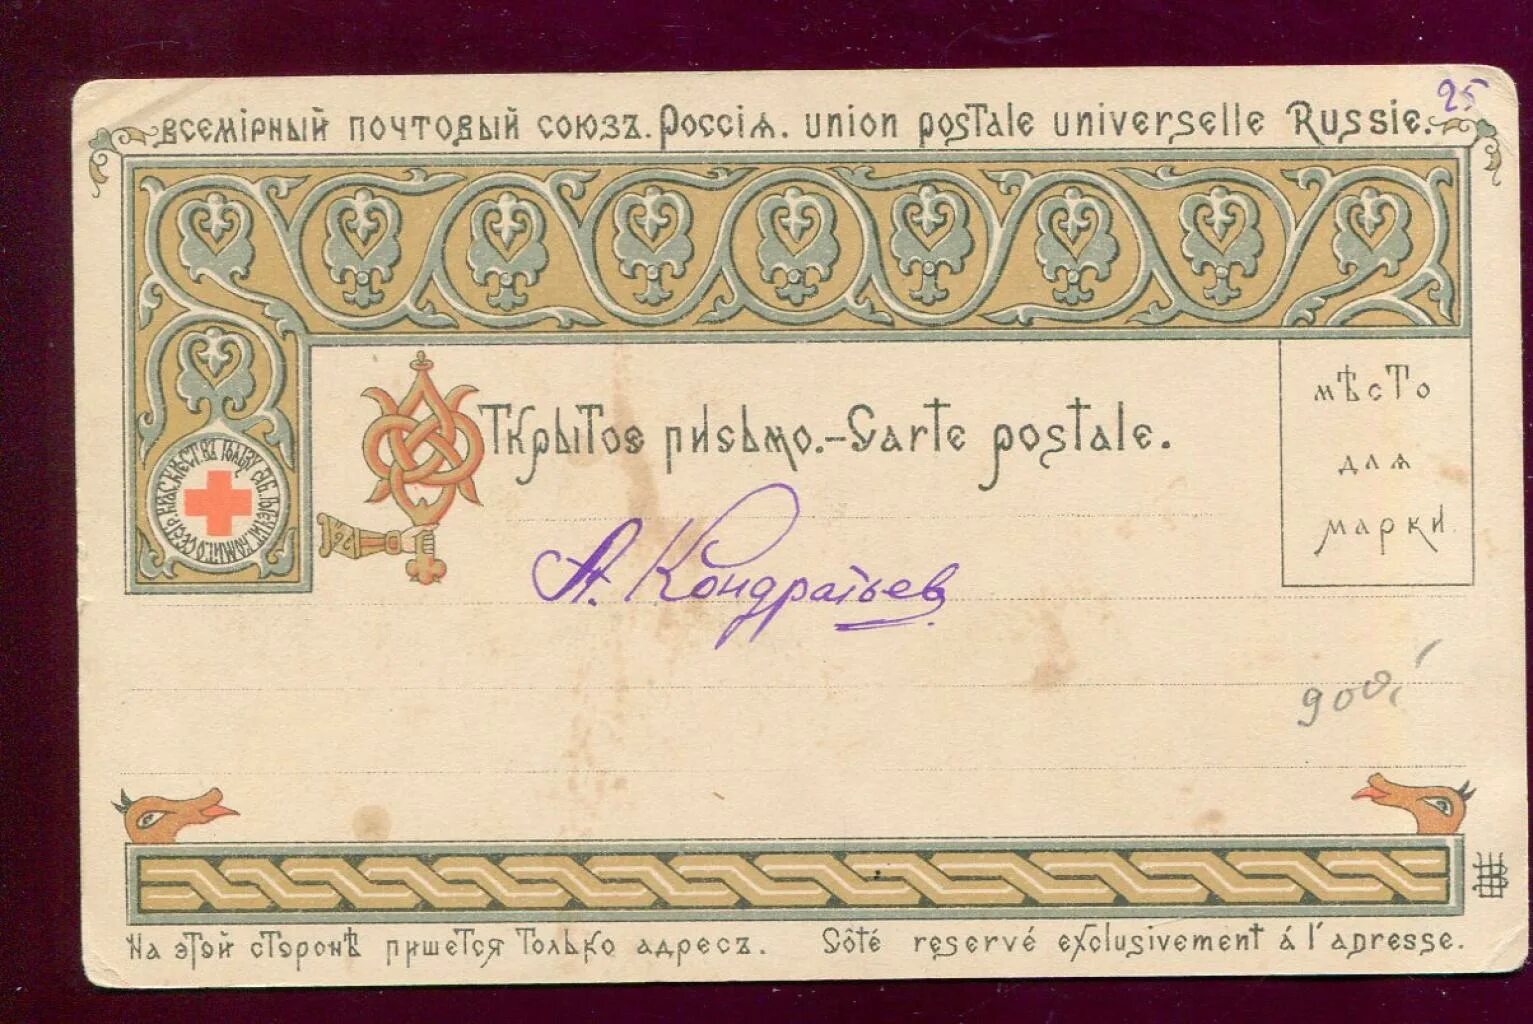 25
всемірный почтовый союзъ. Россія. union postale universelle Russie.
Открытое письмо.-Carte postale.
мѣсто
для
марки
А. Кондратьев
900
На этой сторонѣ пишется только адресъ. Côté reservé exclusivement á l'adresse.